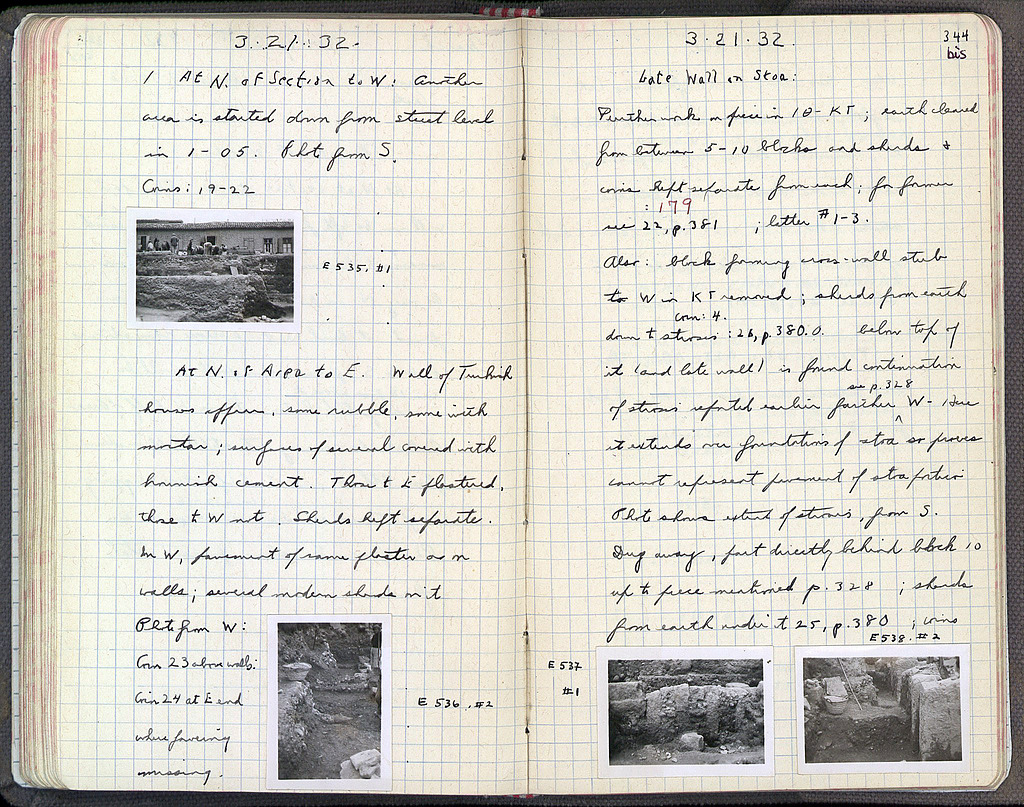 3·21·32·
1 At N. of Section to W: Another
area is started down from street level
in 1-05. Phot from S.
Coins: 19-22
E 535. #1
At N. of Area to E. Wall of Turkish
houses appear, some rubble, some with
mortar; surfaces of several covered with
brownish cement. Those to E plastered,
those to W not. Sherds kept separate.
In W, pavement of same plaster as on
walls; several modern sherds on it
Phot from W:
Coin 23 above walls:
Coin 24 at E end
where paving
missing.
E 536. #2
3·21·32.
344
bis
Late Wall on Stoa:
Further work on piece in 10-KT; earth cleared
from between 5-10 blocks and sherds &
coins kept separate from each; for former
: 179
see 22, p.381 ; letter #1-3.
Also: block forming cross-wall stub
to W in KT removed; sherds from earth
coin: 4.
down to strosis: 26, p.380.0. below top of
it (and late wall) is found continuation
see p. 328
of strosis reported earlier farther W - Here
it extends over foundations of stoa so proves
cannot represent pavement of stoa portico
Phot shows extent of strosis, from S.
Dug away, part directly behind block 10
up to piece mentioned p. 328 ; sherds
from earth under it 25, p.380 ; coins
E 538. #2
E 537
#1